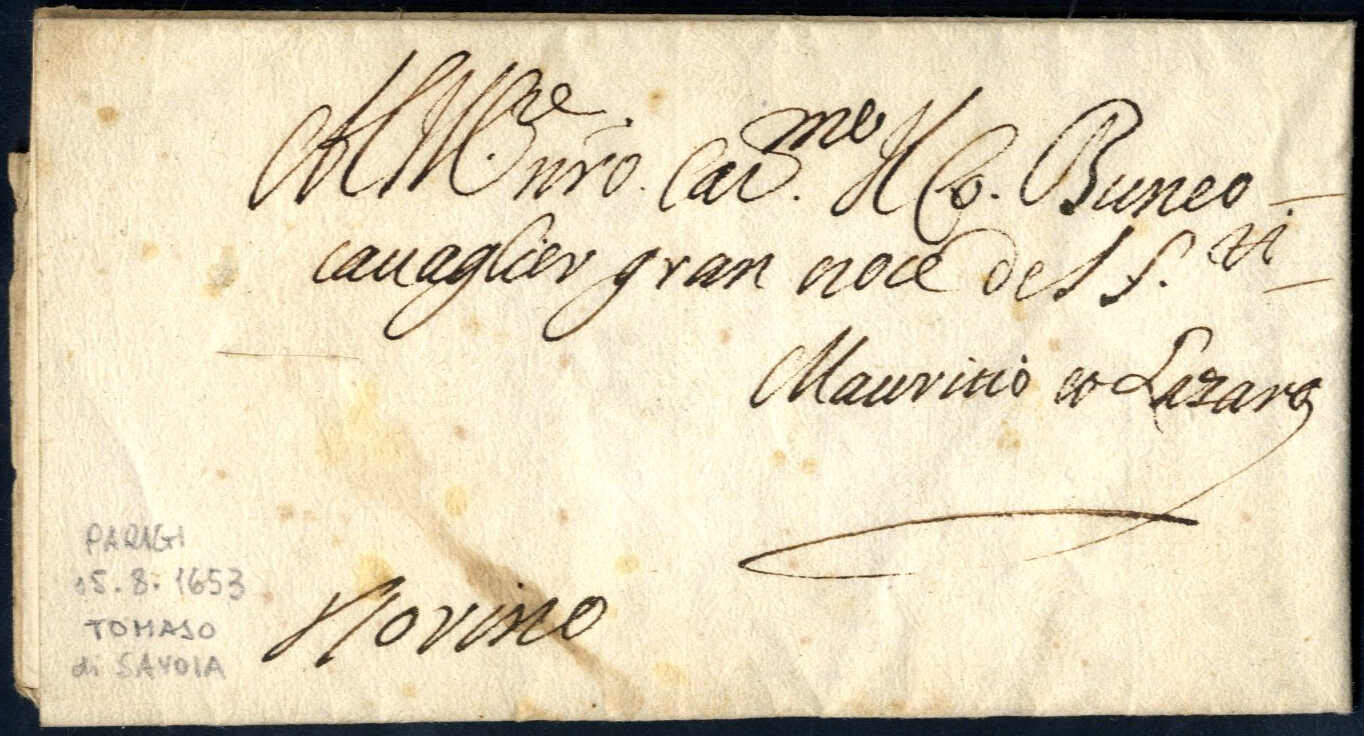 Al M.^re nro. Car.^mo Il Co. Buneo
cavaglier gran croce de SS.^ti
Mauritio et Lazaro
Torino
PARIGI
15.8.1653
TOMASO
di SAVOIA